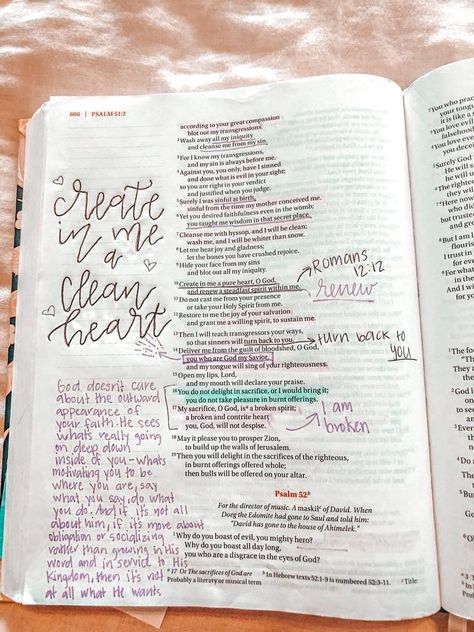 606 | PSALM 51:2
create
in me
a
clean
heart
God doesn't care
about the outward
appearance of
your faith. He sees
whats really going
on deep down
inside of you - whats
motivating you to be
where you are, say
what you say, do what
you do. And if it's not all
about him, if it's more about
obligation or socializing
rather than growing in His
word and in servid to His
Kingdom, then it's not
at all what He wants
according to your great compassion
blot out my transgressions.
2 Wash away all my iniquity
and cleanse me from my sin.
3 For I know my transgressions,
and my sin is always before me.
4 Against you, you only, have I sinned
and done what is evil in your sight;
so you are right in your verdict
and justified when you judge.
5 Surely I was sinful at birth,
sinful from the time my mother conceived me.
6 Yet you desired faithfulness even in the womb;
you taught me wisdom in that secret place.
7 Cleanse me with hyssop, and I will be clean;
wash me, and I will be whiter than snow.
8 Let me hear joy and gladness;
let the bones you have crushed rejoice.
9 Hide your face from my sins
and blot out all my iniquity.
10 Create in me a pure heart, O God,
and renew a steadfast spirit within me.
11 Do not cast me from your presence
or take your Holy Spirit from me.
12 Restore to me the joy of your salvation
and grant me a willing spirit, to sustain me.
13 Then I will teach transgressors your ways,
so that sinners will turn back to you.
14 Deliver me from the guilt of bloodshed, O God,
you who are God my Savior,
and my tongue will sing of your righteousness.
15 Open my lips, Lord,
and my mouth will declare your praise.
16 You do not delight in sacrifice, or I would bring it;
you do not take pleasure in burnt offerings.
17 My sacrifice, O God, is a a broken spirit;
a broken and contrite heart
you, God, will not despise.
18 May it please you to prosper Zion,
to build up the walls of Jerusalem.
19 Then you will delight in the sacrifices of the righteous,
in burnt offerings offered whole;
then bulls will be offered on your altar.
Romans
12:12
renew
turn back to
you
I am
broken
Psalm 52 b
For the director of music. A maskil c of David. When
Doeg the Edomite had gone to Saul and told him:
"David has gone to the house of Ahimelek."
1 Why do you boast of evil, you mighty hero?
Why do you boast all day long,
you who are a disgrace in the eyes of God?
a 17 Or The sacrifices of God are
b In Hebrew texts 52:1-9 is numbered 52:3-11.
c Title:
Probably a literary or musical term